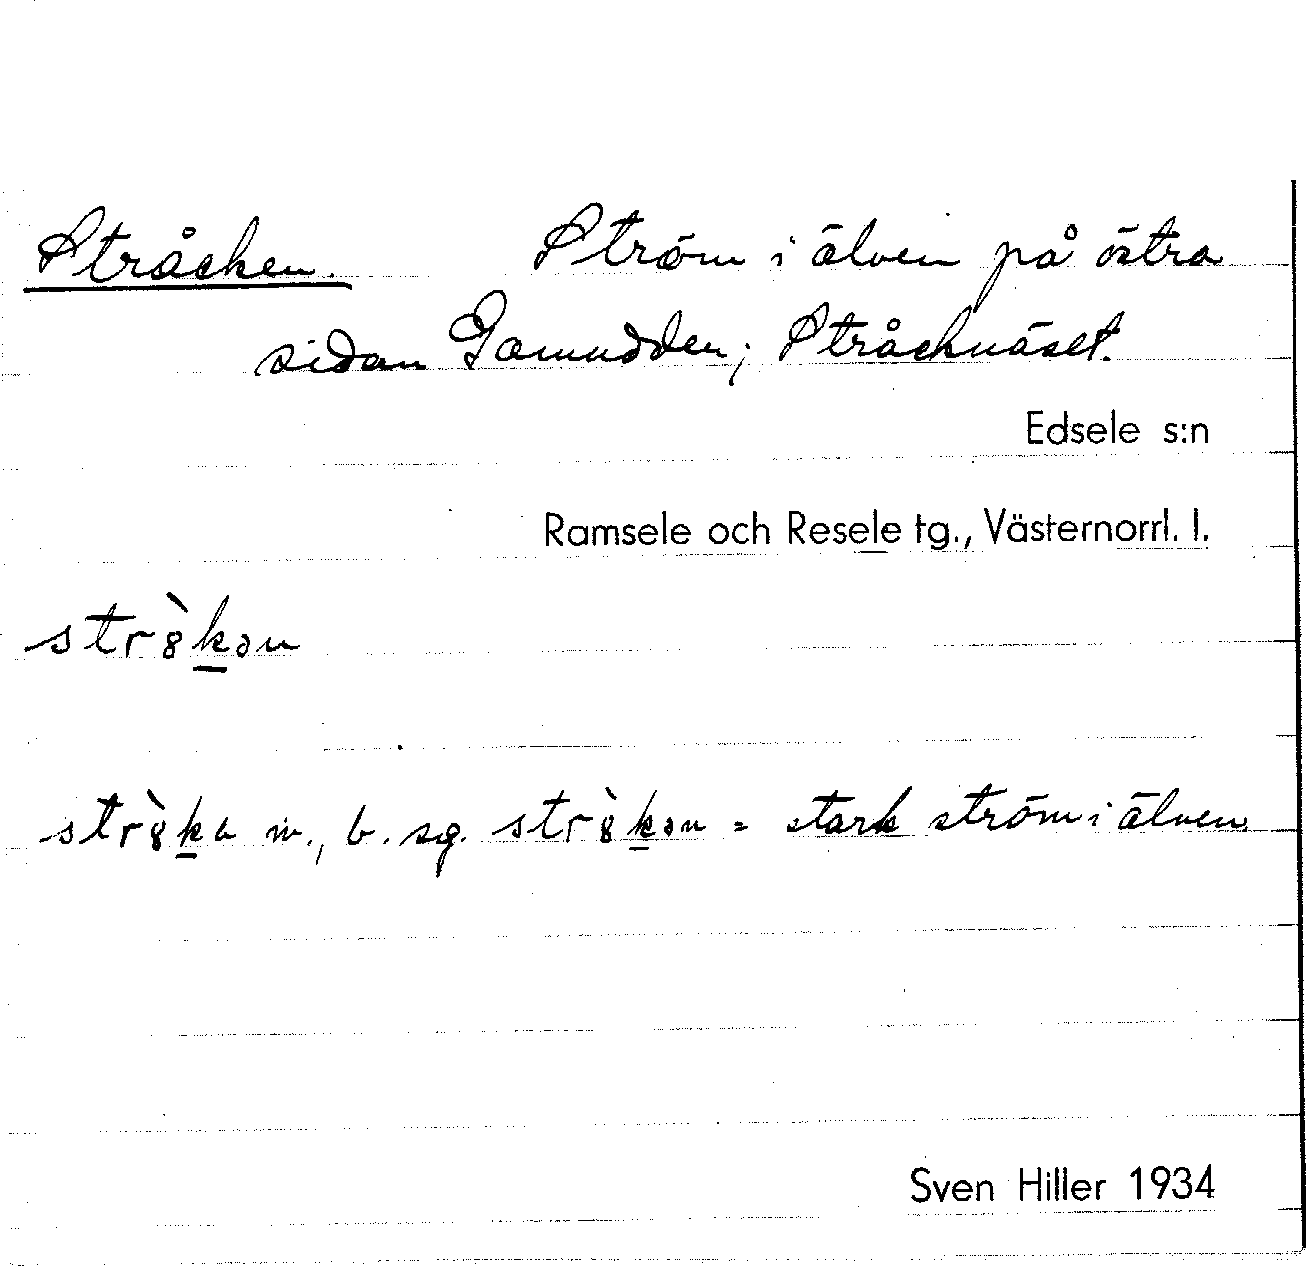 Stråcken. Ström i älven på östra
sidan Gamudden; Stråcknäset.
Edsele s:n
Ramsele och Resele tg., Västernorrl. l.
str8̀kən
str8̀ka m., b. sg. str8̀kən = stark ström i älven
Sven Hiller 1934